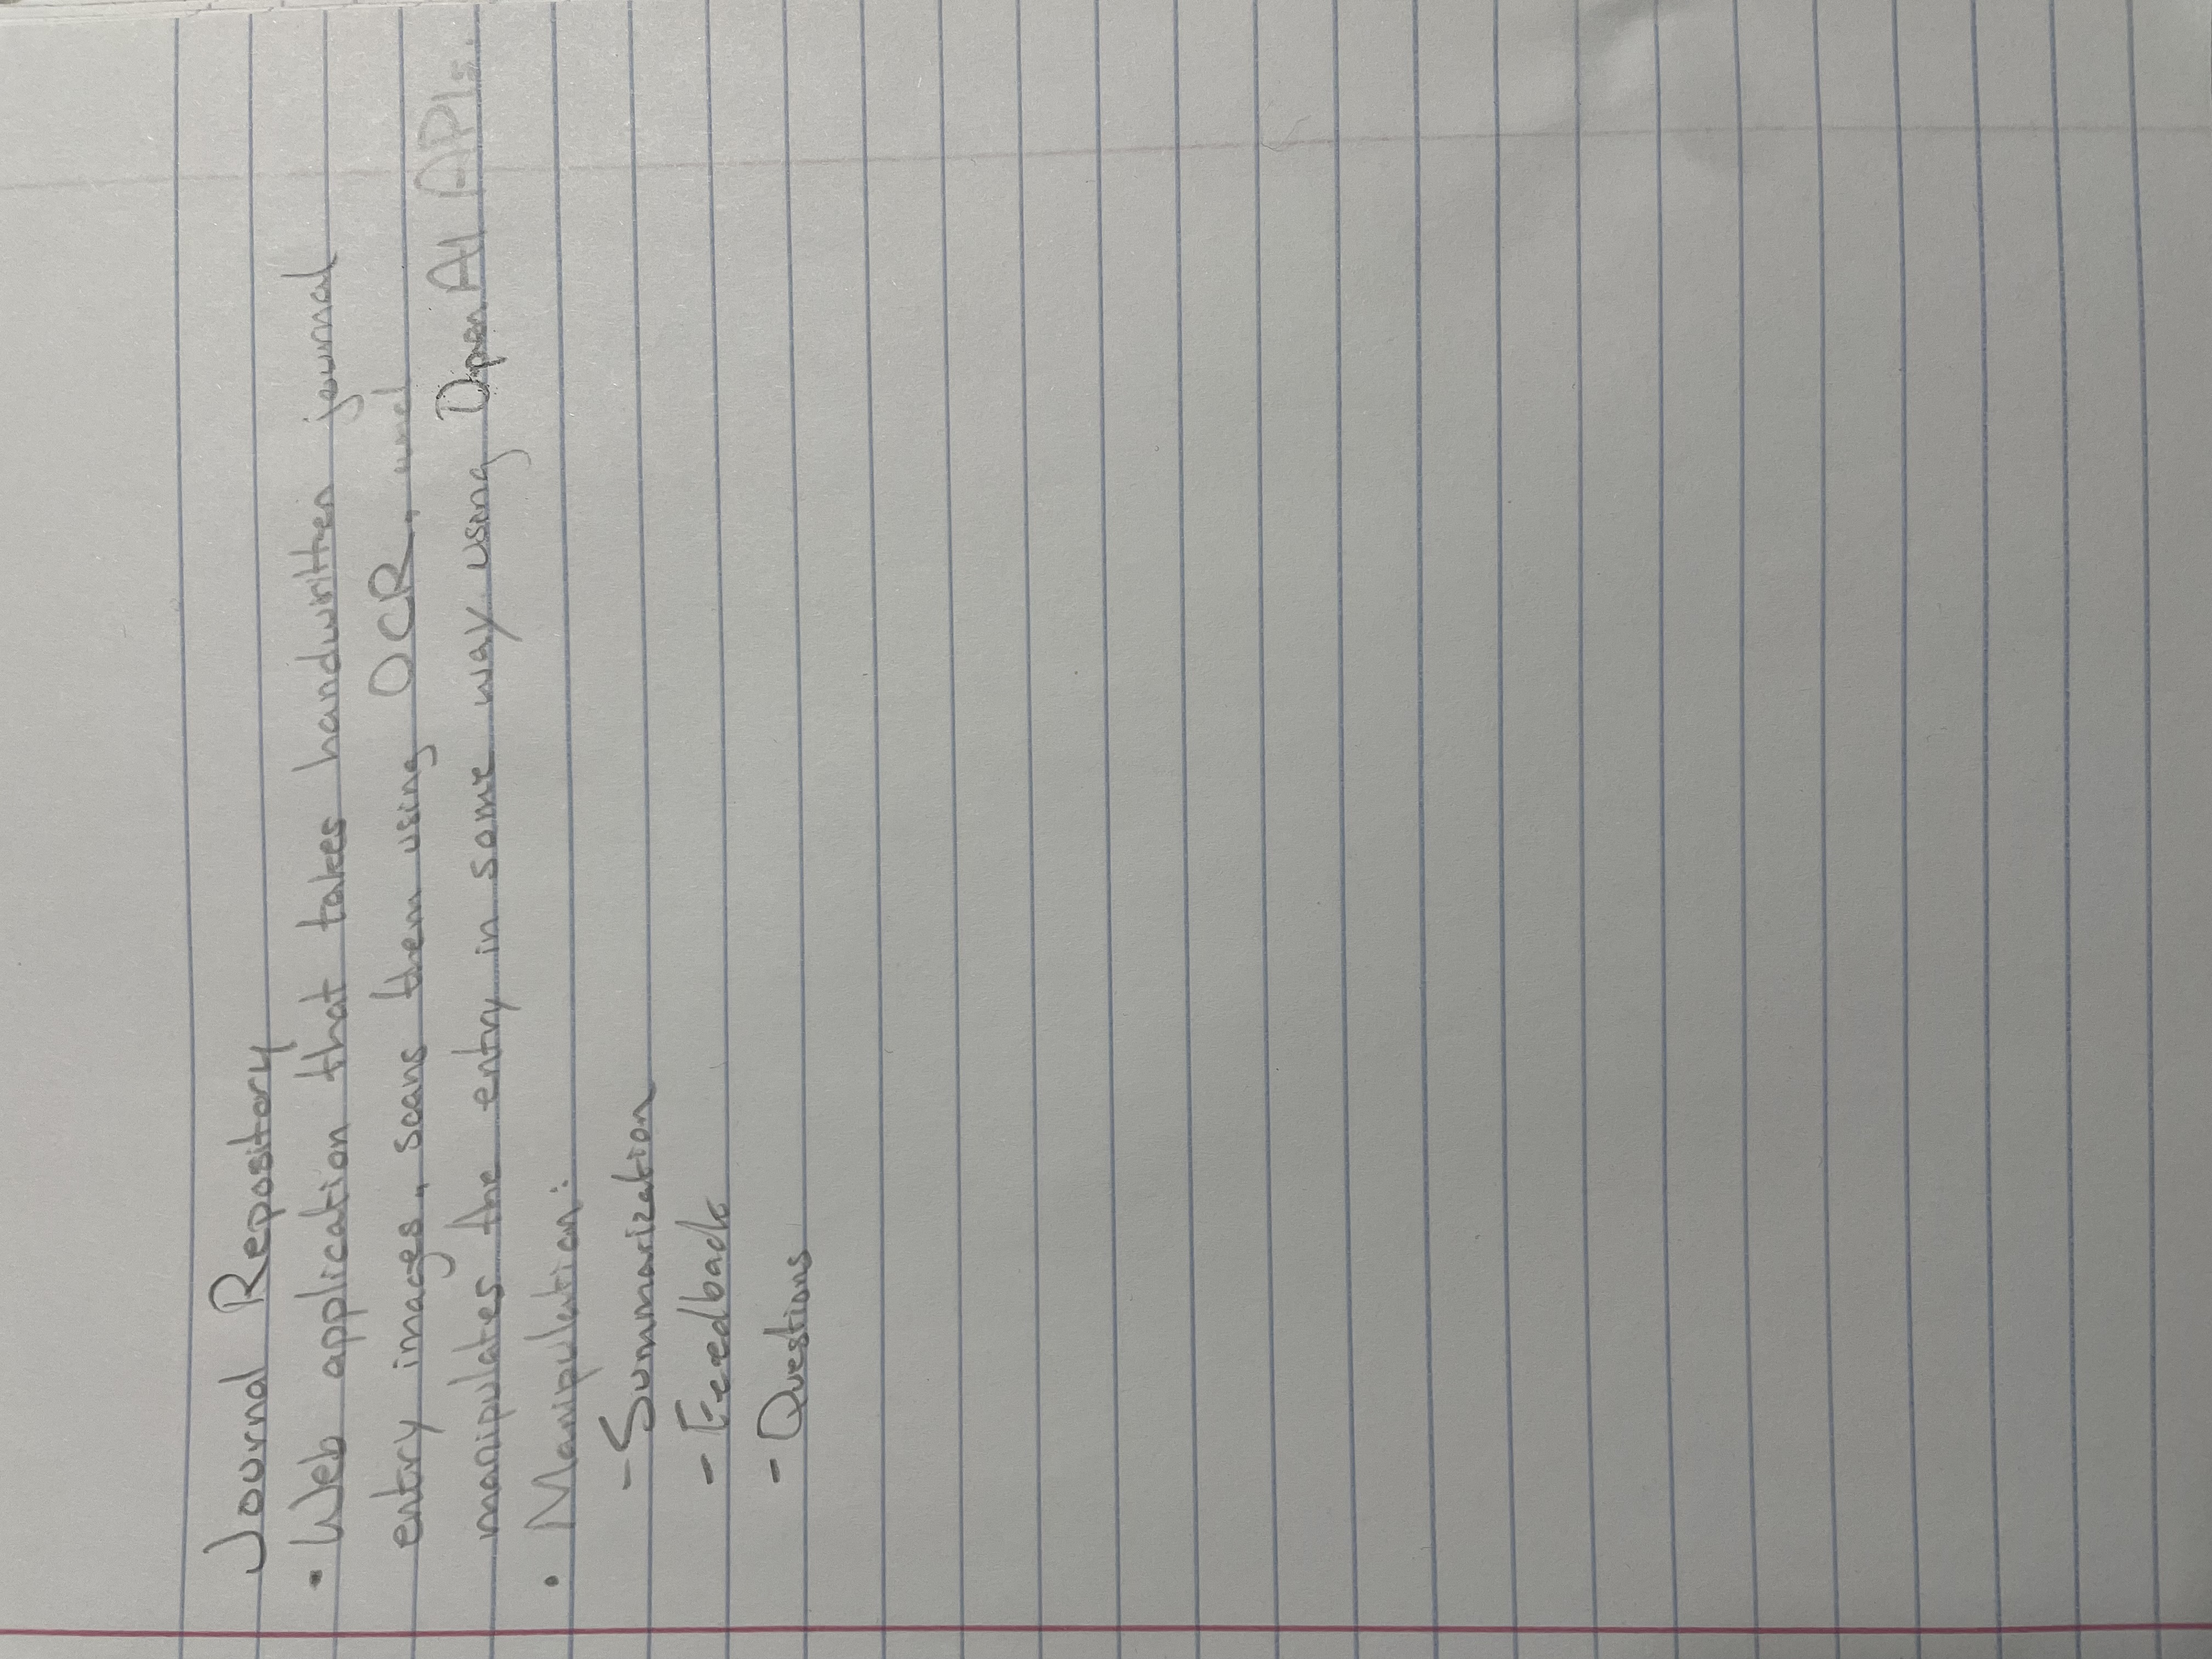 Journal Repository
• Web application that takes handwritten journal
entry images, scans them using OCR, and
manipulates the entry in some way using OpenAI APIs.
• Manipulation:
- Summarization
- Feedback
- Questions